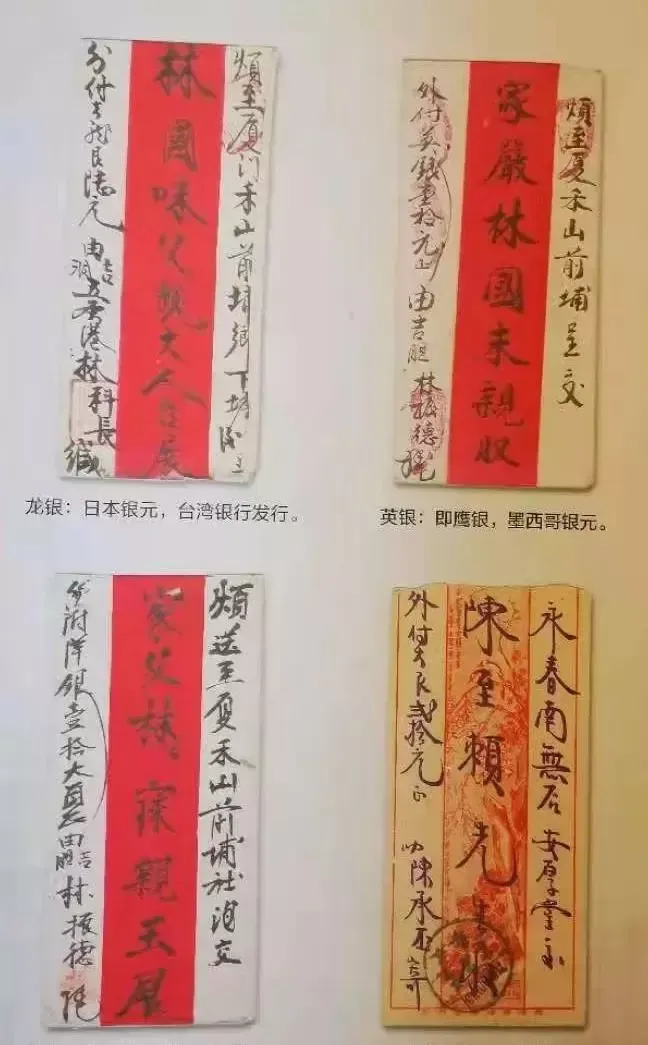 煩至厦门禾山前埔鄉下堡
林國味父親大人台展
外付大龍艮陆元
由吉
香港林科長
緘
煩至夏禾山前埔呈交
家嚴林國未親收
外付英銀壹拾元正
由吉胆林振德
龙银：日本银元，台湾银行发行。
英银：即鹰银，墨西哥银元。
煩送至夏禾山前埔社消交
家父林寀親玉展
外附洋銀壹拾大員
由吉胆林振德
永春南無后安厚堂
陳至賴先生收
外付大艮弍拾元正
陳承丕寄